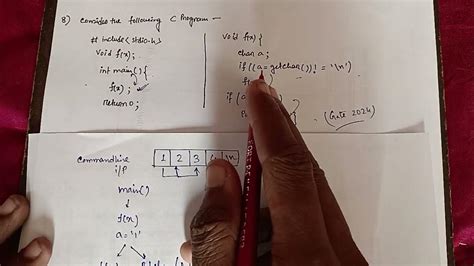 8) Consider the following C Program —
# include <stdio.h>
void f(x);
int main() {
f(x);
return 0;
void f(x) {
char a;
if ((a = getchar()) != '\n')
if (a
(Gate 2024)
Commandline
i/p
1 2 3
main()
f(x)
a='1'